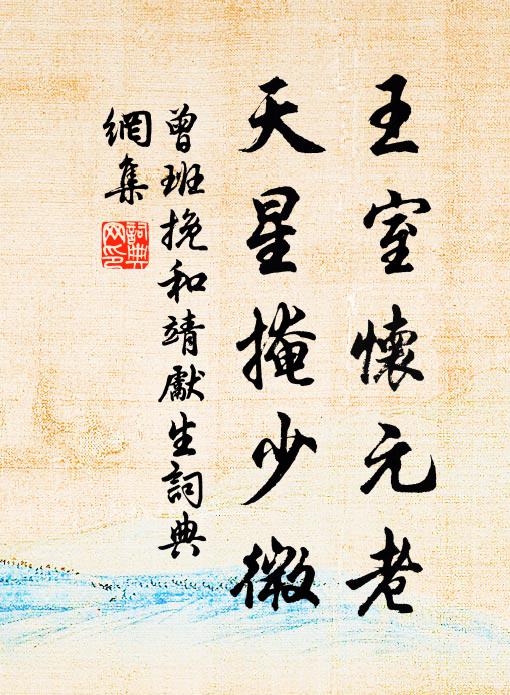 王室懷元老
天星掩少微
曾班挽和靖處生詞典
網集
詞典
网印